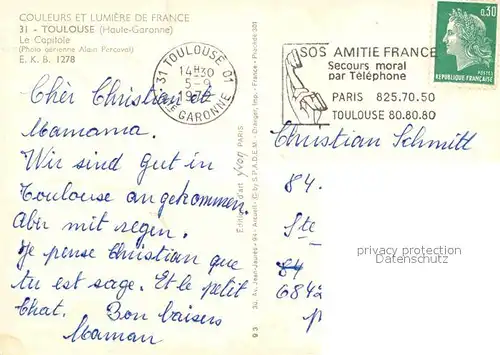 COULEURS ET LUMIÈRE DE FRANCE
31 - TOULOUSE (Haute-Garonne)
Le Capitole
(Photo aérienne Alain Perceval)
E. K. B. 1278
31 TOULOUSE 01
14H30
5-9
GARONNE
SOS AMITIE FRANCE
Secours moral
par Téléphone
PARIS 825.70.50
TOULOUSE 80.80.80
0,30
POSTES
REPUBLIQUE FRANÇAISE
Cher Christian et
Mamama.
Wir sind gut in
Toulouse angekommen.
Abir mit regen.
Je pense Christian que
tu est sage. Et le petit
Chat. Bon baisers
Maman
Editions d'art yvon PARIS
30, Av. Jean-Jaurès - 94 - Arcueil - © by S.P.A.D.E.M. - Draeger, Imp. - France
93
Christian Schmitt
84.
Ste
64
6842
privacy protection
Datenschutz